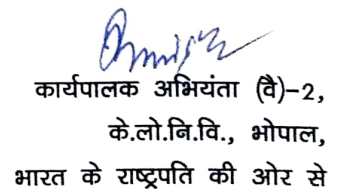 कार्यपालक अभियंता (वै)-2,
के.लो.नि.वि., भोपाल,
भारत के राष्ट्रपति की ओर से